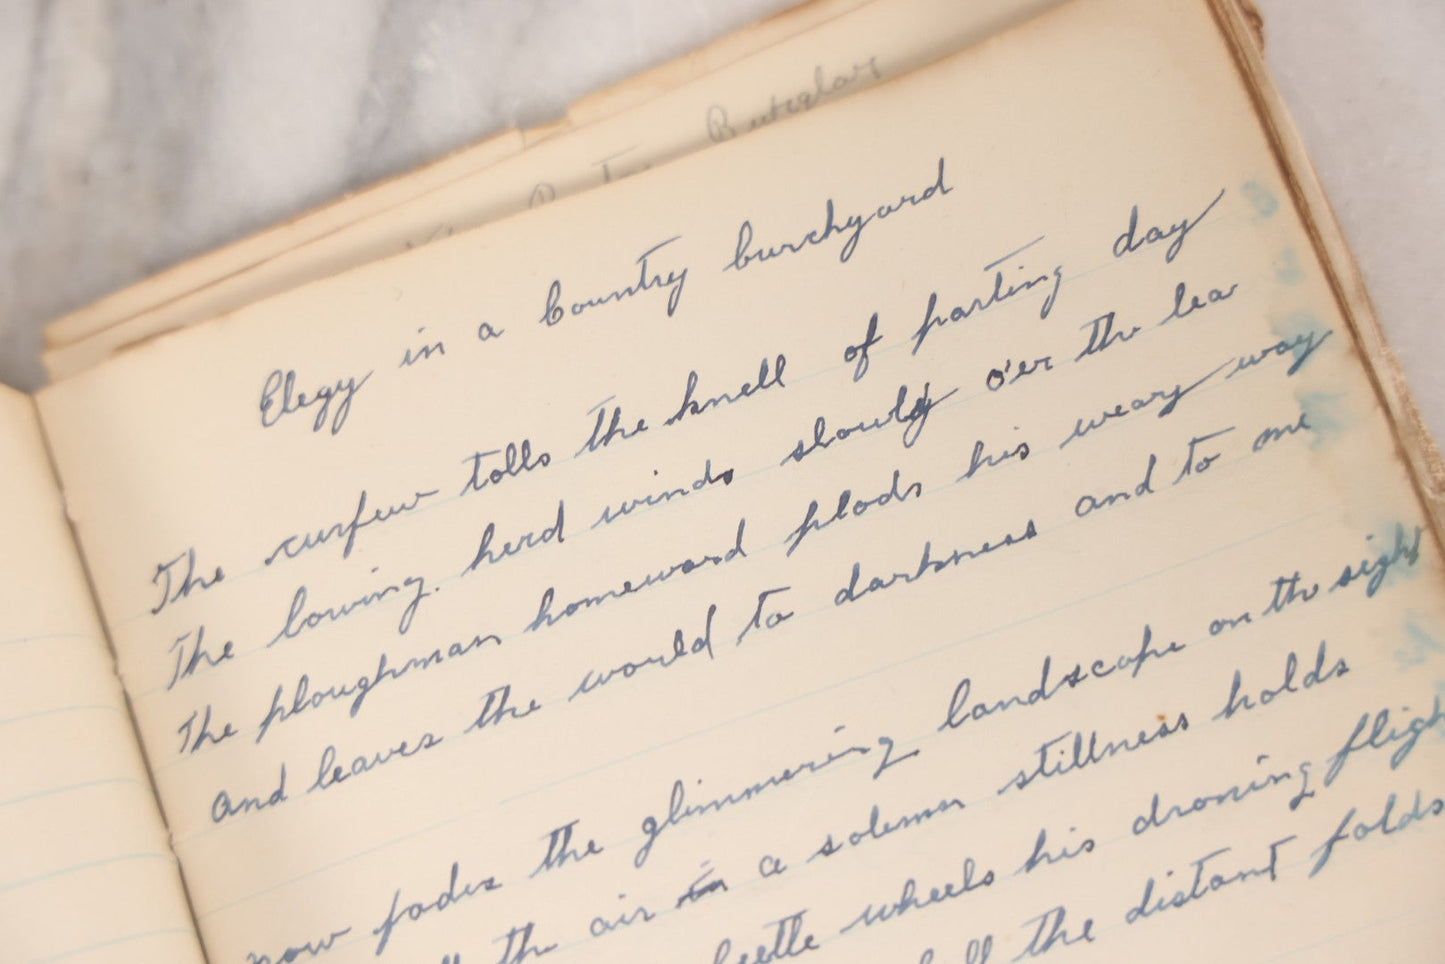 Burglar
Elegy in a Country burchyard
The curfew tolls the knell of parting day
The lowing herd winds slowly o'er the lea
The ploughman homeward plods his weary way
and leaves the world to darkness and to me
now fades the glimmering landscape on the sight
the air a solemn stillness holds
beetle wheels his droning fligh
the distant folds